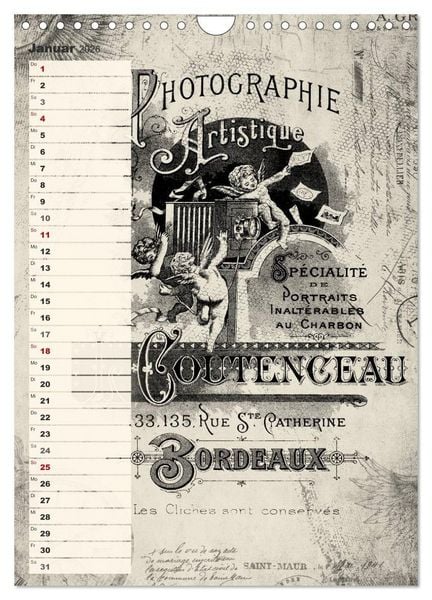 A. GR
Januar 2026
Do 1
Fr 2
Sa 3
So 4
Mo 5
Di 6
Mi 7
Do 8
Fr 9
Sa 10
So 11
Mo 12
Di 13
Mi 14
Do 15
Fr 16
Sa 17
So 18
Mo 19
Di 20
Mi 21
Do 22
Fr 23
Sa 24
So 25
Mo 26
Di 27
Mi 28
Do 29
Fr 30
Sa 31
PHOTOGRAPHIE
Artistique
SPÉCIALITÉ
DE
PORTRAITS
INALTÉRABLES
AU CHARBON
COUTENCEAU
33.135. RUE STE CATHERINE
BORDEAUX
Les Clichés sont conservés
SAINT-MAUR